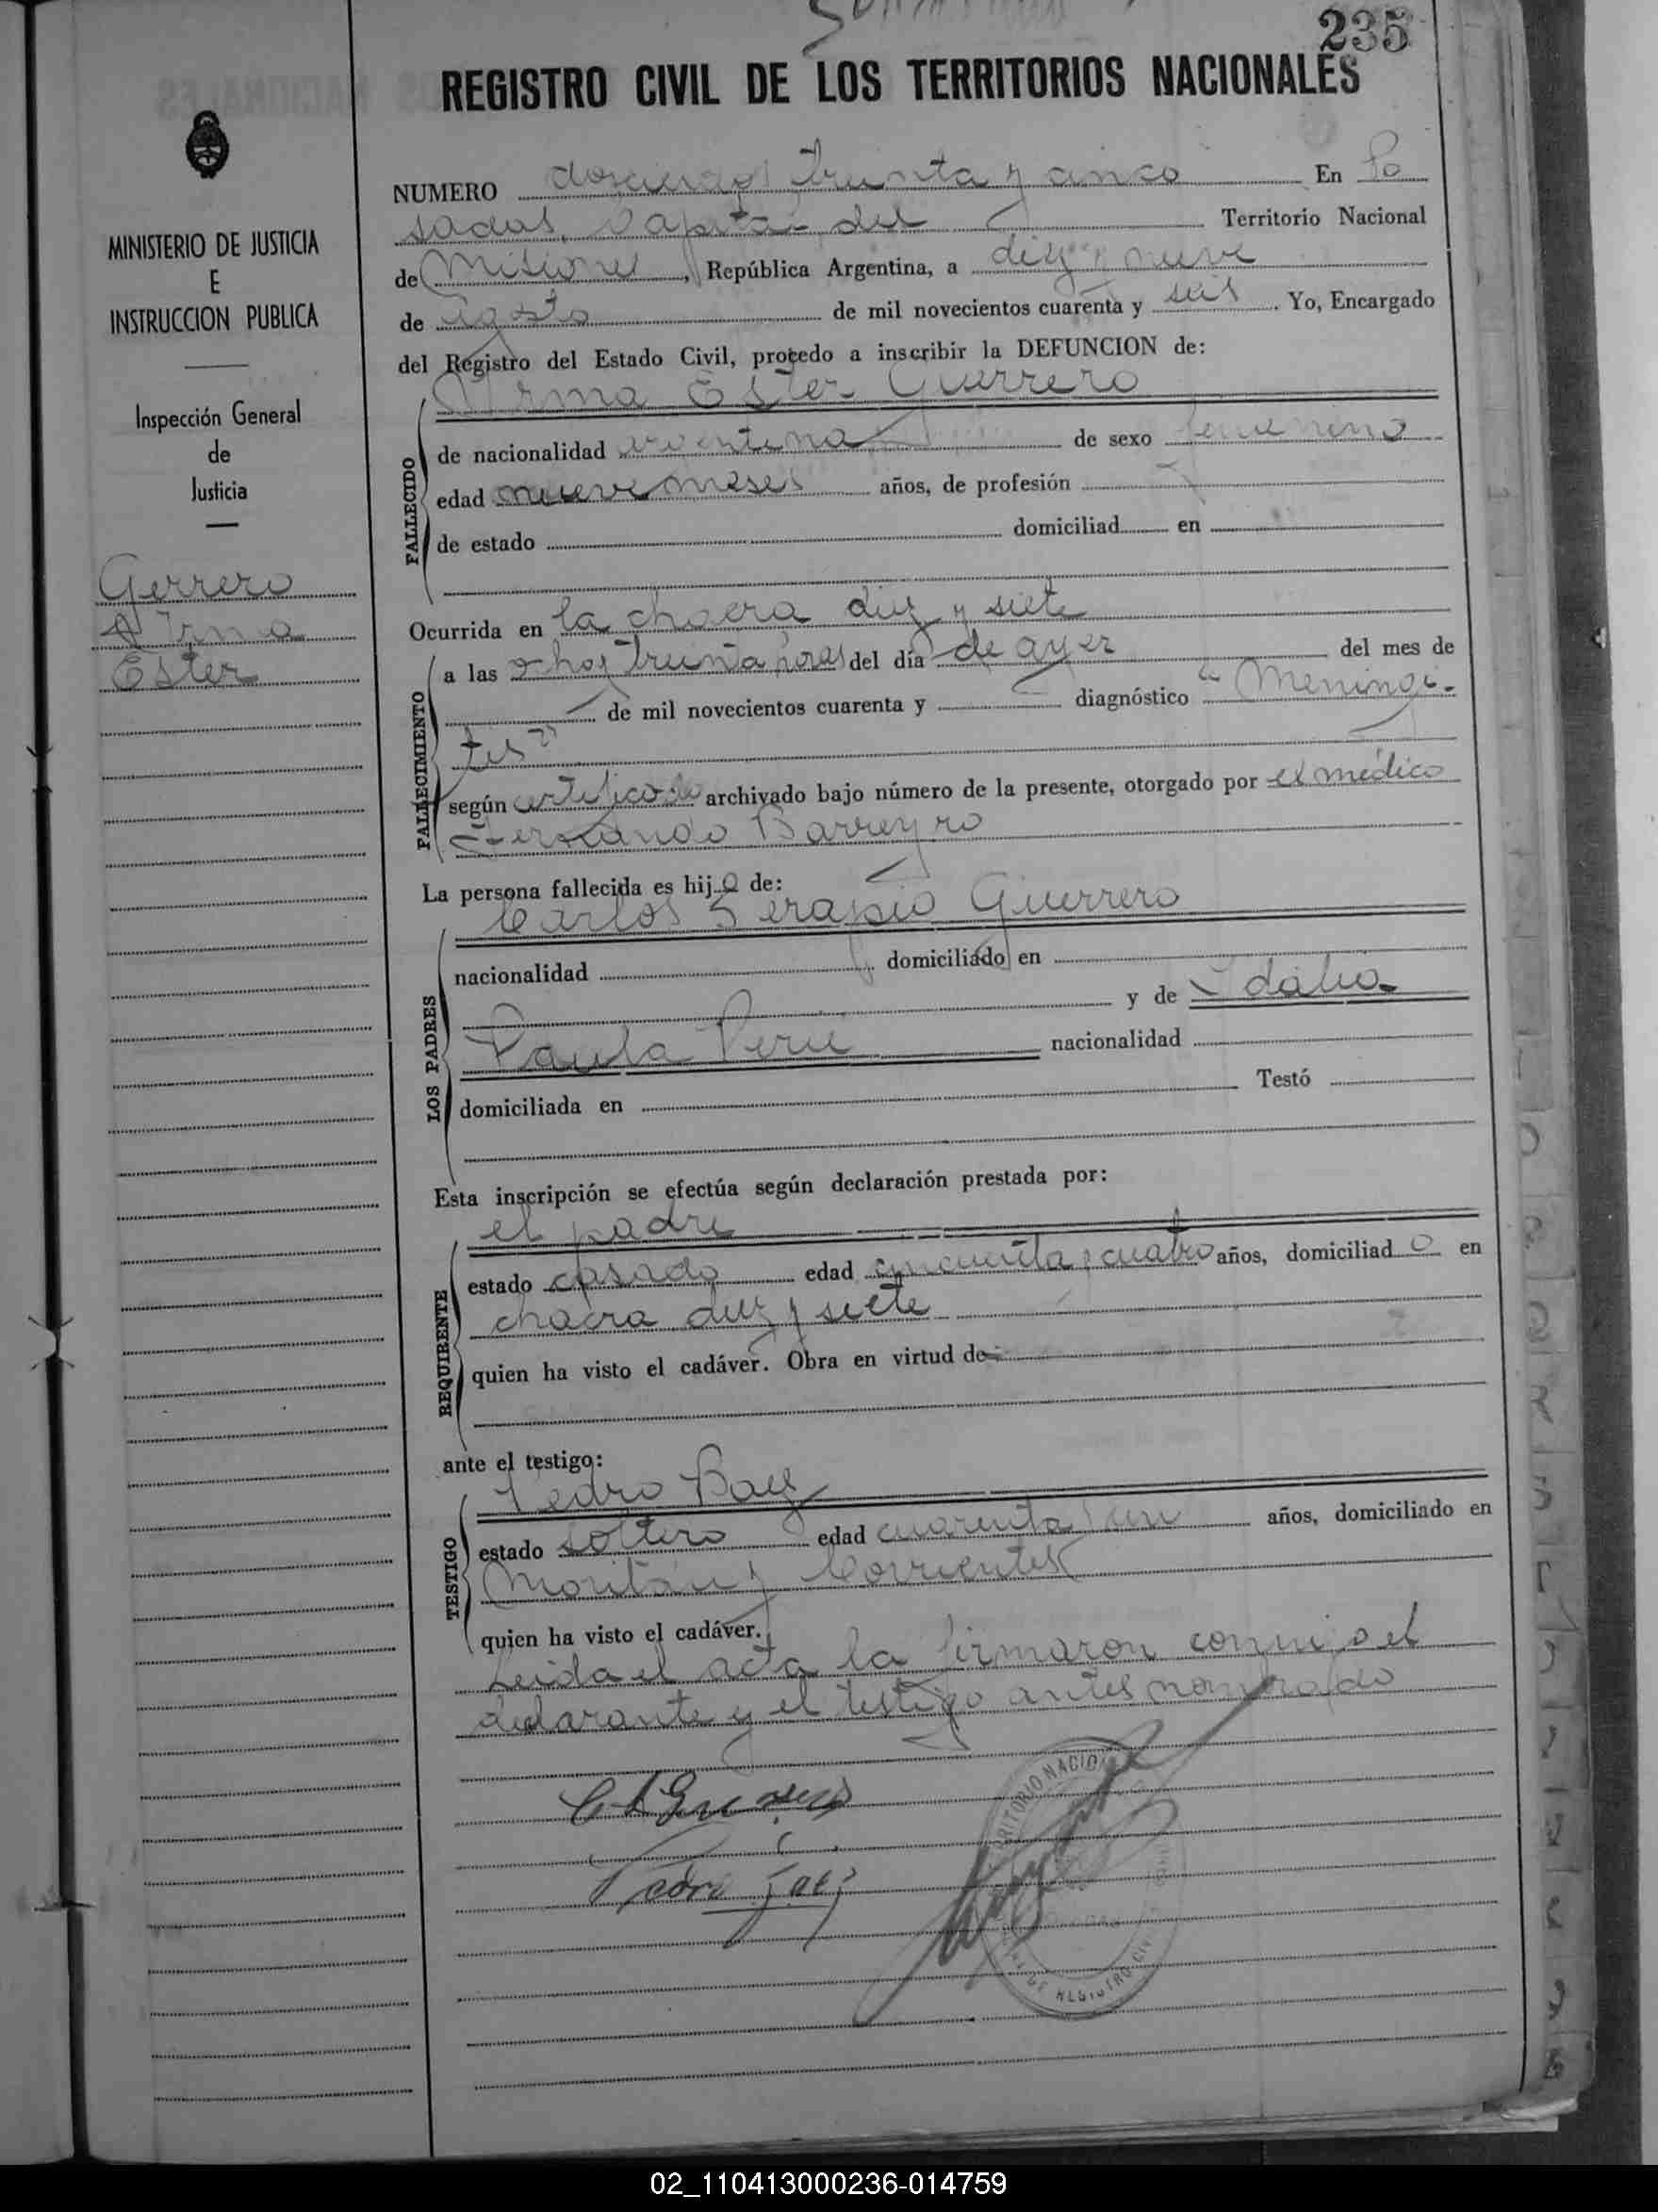 235
REGISTRO CIVIL DE LOS TERRITORIOS NACIONALES
MINISTERIO DE JUSTICIA
E
INSTRUCCION PUBLICA
Inspección General
de
Justicia
Gerrero
Irma
Ester
NUMERO doscientos treinta y cinco En Po
sadas, Capital del Territorio Nacional
de Misiones, República Argentina, a diez y nueve
de Agosto de mil novecientos cuarenta y seis. Yo, Encargado
del Registro del Estado Civil, procedo a inscribir la DEFUNCION de:
Irma Ester Guerrero
FALLECIDO
de nacionalidad argentina de sexo femenino
edad nueve meses años, de profesión
de estado domiciliad en
Ocurrida en la chacra diez y siete
FALLECIMIENTO
a las treinta horas del día de ayer del mes de
de mil novecientos cuarenta y diagnóstico "Meningi-
tis"
según certificado archivado bajo número de la presente, otorgado por el médico
Fernando Barreyro
La persona fallecida es hija de:
LOS PADRES
Carlos Serapio Guerrero
nacionalidad domiciliado en
y de Idalia
Paula Peru nacionalidad
domiciliada en Testó
Esta inscripción se efectúa según declaración prestada por:
REQUIRENTE
el padre
estado casado edad cincuenta y cuatro años, domiciliado en
chacra diez y siete
quien ha visto el cadáver. Obra en virtud de
ante el testigo:
TESTIGO
Pedro Baez
estado soltero edad cuarenta y un años, domiciliado en
y Corrientes
quien ha visto el cadáver.
Leida el acta la firmaron conmigo el
declarante y el testigo antes nombrado
02_110413000236-014759